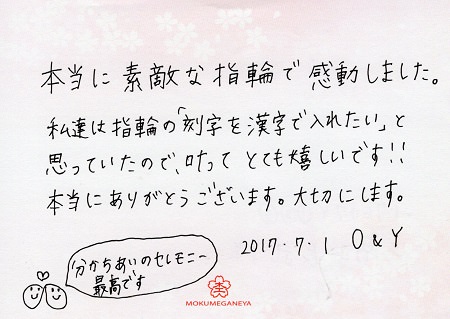 本当に素敵な指輪で感動しました。
私達は指輪の「刻字を漢字で入れたい」と
思っていたので、叶ってとても嬉しいです!!
本当にありがとうございます。大切にします。
2017.7.1 O&Y
分かちあいのセレモニー
最高です
MOKUMEGANEYA